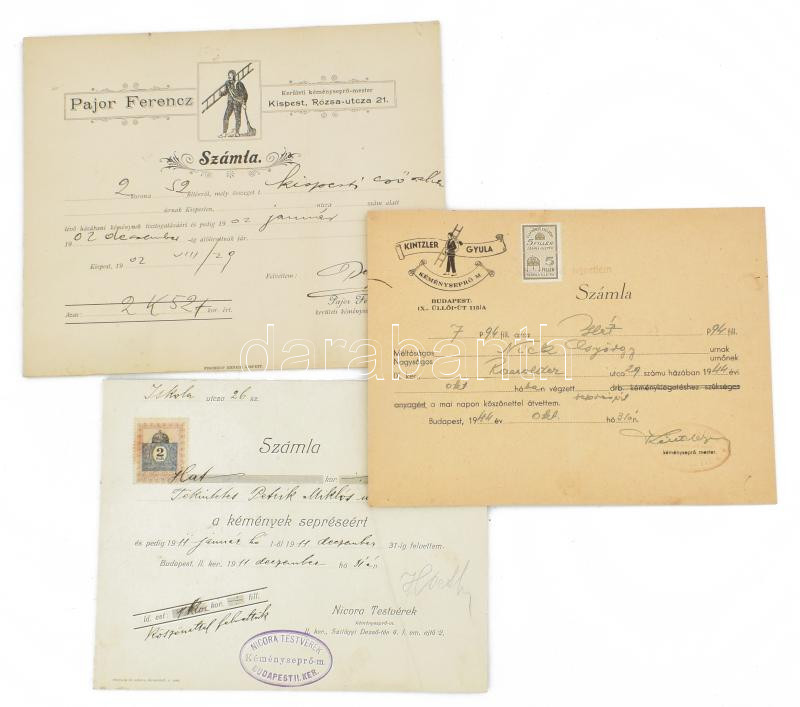 Pajor Ferencz
Kerületi kéményseprő-mester
Kispest, Rózsa-utcza 21.
Számla.
2 korona 52 fillérről, mely összeget t. kispesti
úrnak Kispesten, utcza szám alatt
lévő házábani kéménynek tisztogatásáért és pedig 1902 január
1902 deczember -ig átlörlottnak tár.
Kispest, 1902 VIII/29
Felvettem:
Azaz: 2 K 52 f kor. ért.
Pajor
kerületi kéménysep
KINTZLER GYULA
KÉMÉNYSEPRŐ M.
BUDAPEST:
IX., ÜLLŐI-ÚT 115/A
5 FILLÉR
5
Számla
7 P 94 fill. azaz Hét P 94 fill.
Méltóságos
Nagyságos
Nick György
urnak
urnőnek
II. ker., utca 29 számu házában 1944 évi
okt hó ban végzett drb. kéményKiégetéshez szükséges
anyagért a mai napon köszönettel átvettem.
Budapest, 1944 év okt. hó 31 én.
Kintzler
kéményseprő mester.
darabanth
Iskola utcza 26 sz.
Számla
2
Hat kor.
Tekintetes Petrik Miklós
a kémények sepréseért
és pedig 1911 január hó 1-től 1911 deczember 31-ig felvettem.
Budapest, II. ker. 1911 deczember hó 31 én
Id. est: kor. fill.
Köszönettel felvettük
Nicora Testvérek
kéményseprő-m.
II. ker., Szilágyi Dezső-tér 4. I. em. ajtó 2.
NICORA TESTVÉREK
Kéményseprő-m.
BUDAPEST II. KER.